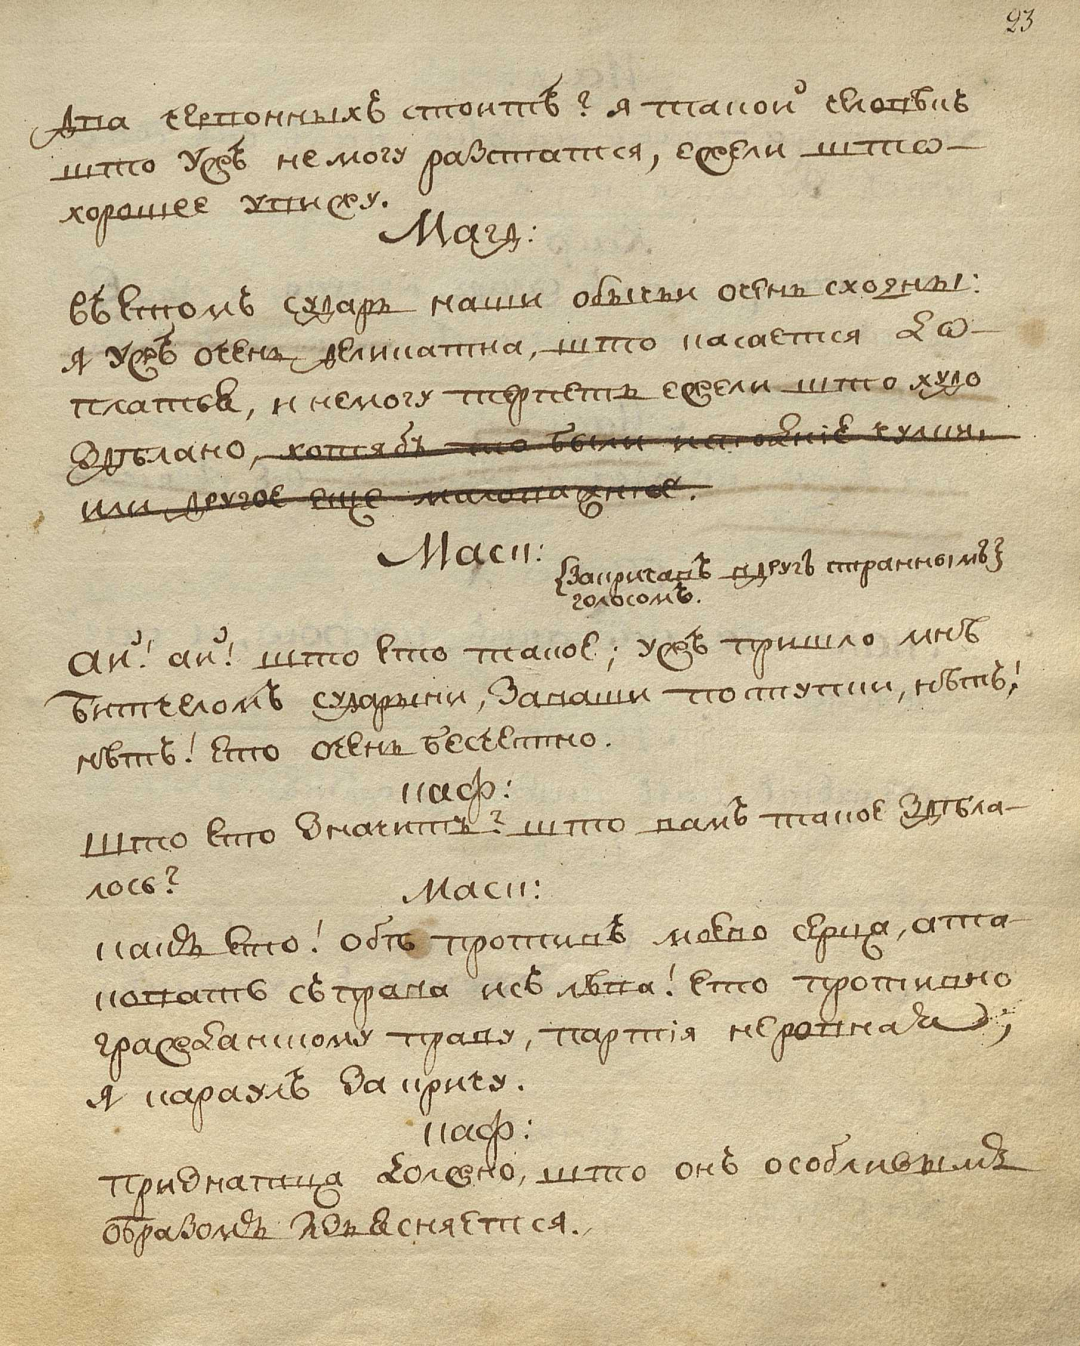 23
два червонныхъ стоитъ? я такой человѣкъ
што ужъ немогу разстатся, ежели што
хорошее увижу.
Магд:
въ етомъ сударь наши обычьи очень сходны:
я ужъ очень деликатна, што касается до
платья, и немогу терпеть ежели што худо
здѣлано, хотябъ то были исподніе чулки,
или другое еще маловажное.
Маск:
{Закричавъ вдругъ страннымъ}
голосомъ.
ай! ай! што ето такое; ужъ пришло мнѣ
битьемъ сударыни, Заваши поступки, нѣтъ!
нѣтъ! ето очень бесчестно.
каф:
што ето значитъ? што вамъ такое здѣла-
лось?
Маск:
какъ ето! обѣ противъ моево серца, ата-
ковать съправа исъ лѣва! ето противно
гражданскому праву, партія неровная;
я караулъ закричу.
каф:
признатца должно, што онъ особливымъ
образомъ изъясняется.